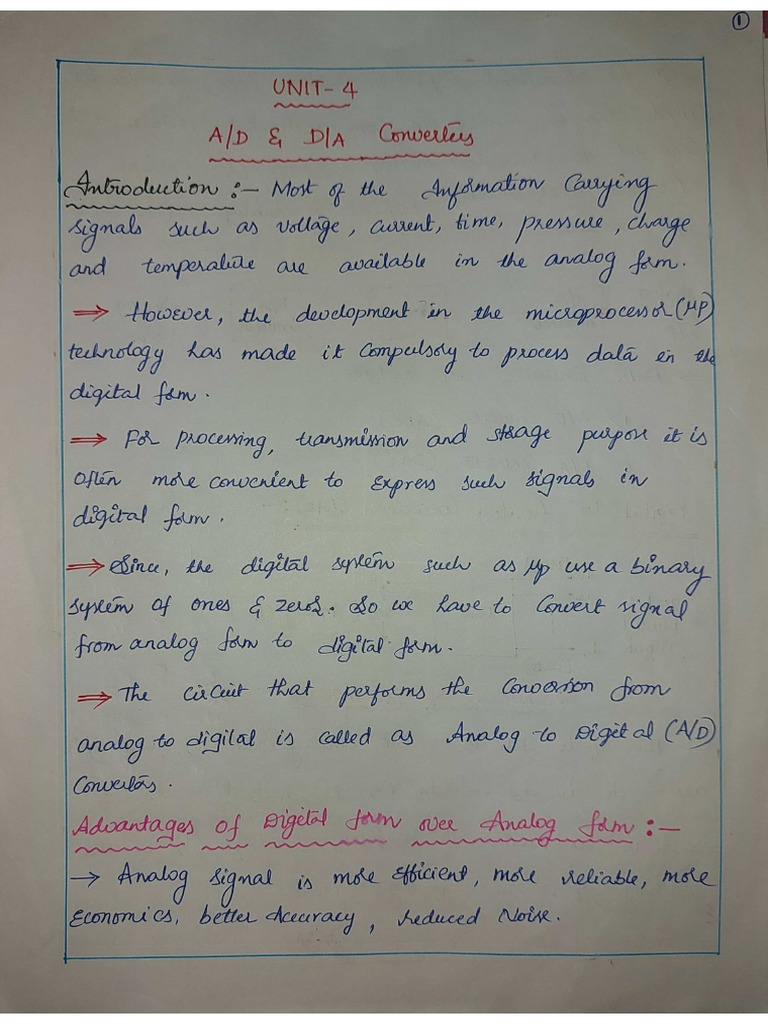 ①
UNIT-4
A/D & D/A Converters
Introduction :- Most of the Information Carrying
signals such as voltage, current, time, pressure, charge
and temperature are available in the analog form.
⇒ However, the development in the microprocessor (μP)
technology has made it compulsory to process data in the
digital form.
⇒ For processing, transmission and storage purpose it is
often more convenient to express such signals in
digital form.
⇒ Since, the digital system such as μp use a binary
system of ones & zeros. So we have to convert signal
from analog form to digital form.
⇒ The circuit that performs the conversion from
analog to digital is called as Analog to Digital (A/D)
Convertors.
Advantages of Digital form over Analog form :-
→ Analog signal is more efficient, more reliable, more
Economics, better Accuracy, reduced Noise.